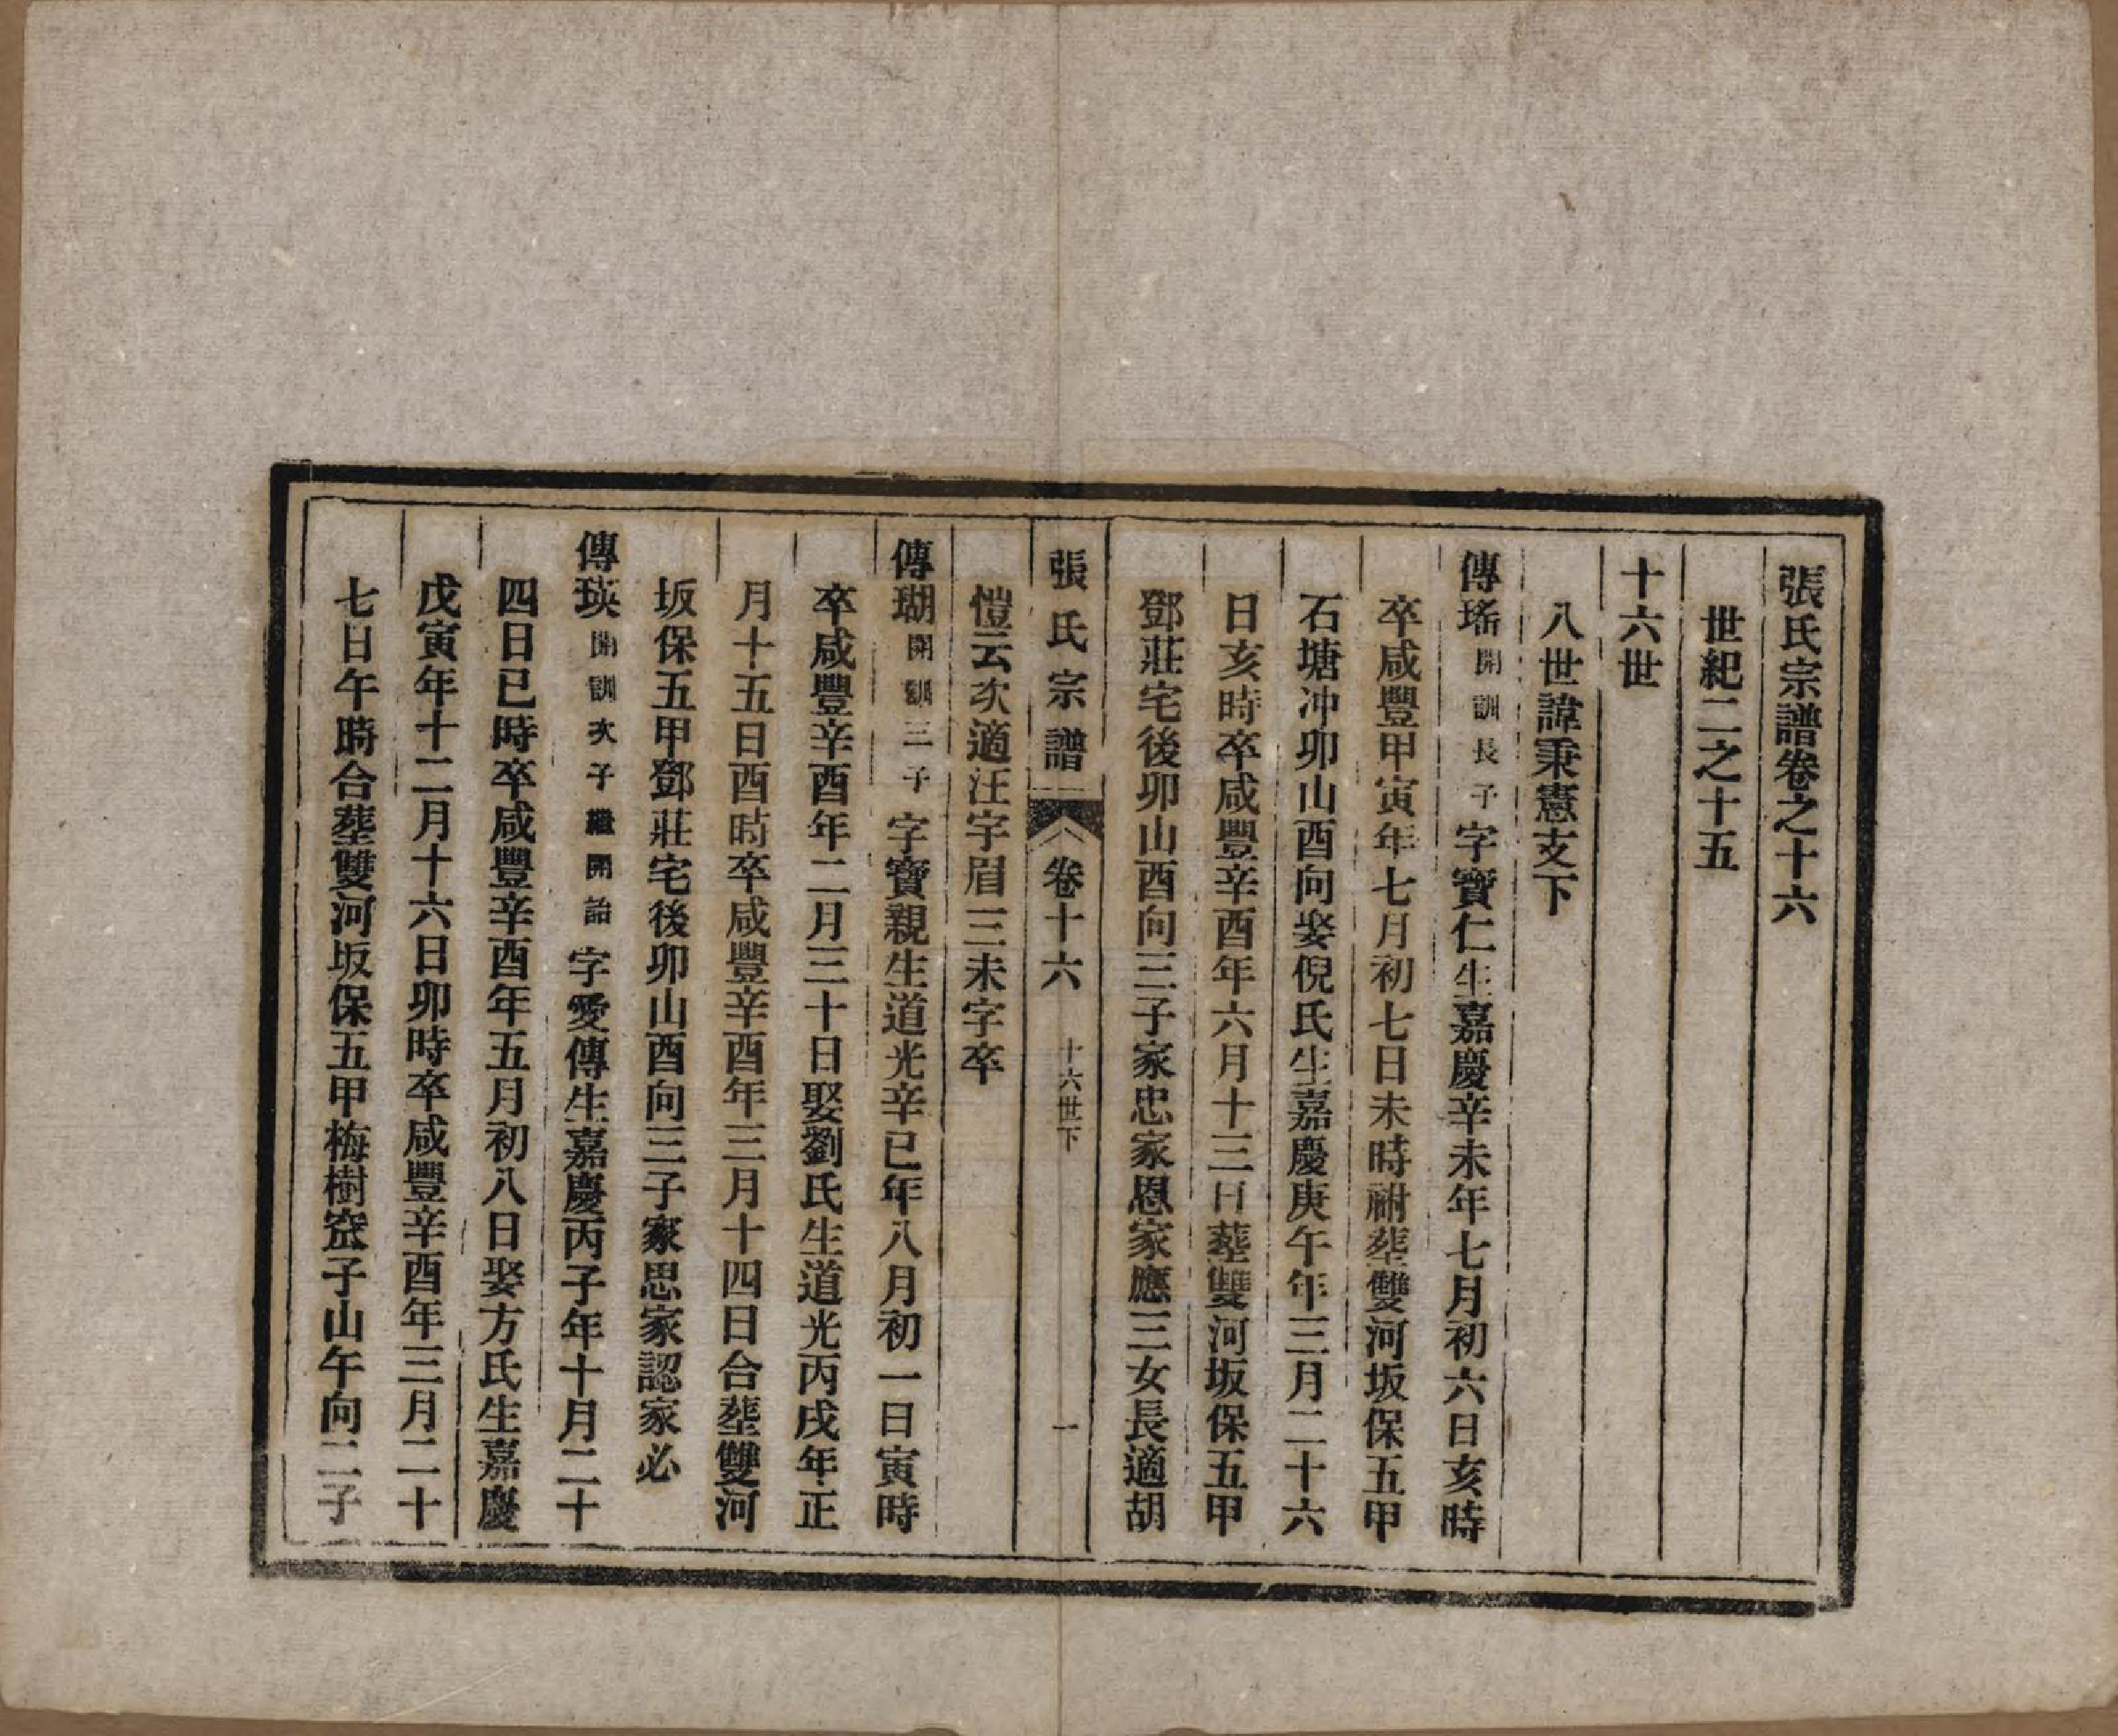 張氏宗譜卷之十六
世紀二之十五
十六世
八世諱秉憲支下
傳瑤開訓長子字寶仁生嘉慶辛未年七月初六日亥時
卒咸豐甲寅年七月初七日未時祔塟雙河坂保五甲
石塘冲卯山酉向娶倪氏生嘉慶庚午年三月二十六
日亥時卒咸豐辛酉年六月十三日塟雙河坂保五甲
鄧莊宅後卯山酉向三子家忠家恩家應三女長適胡
張氏宗譜 卷十六 十六世下 一
愷云次適汪字眉三未字卒
傳瑚開訓三子字寶親生道光辛巳年八月初一日寅時
卒咸豐辛酉年二月三十日娶劉氏生道光丙戌年正
月十五日酉時卒咸豐辛酉年三月十四日合塟雙河
坂保五甲鄧莊宅後卯山酉向三子家思家認家必
傳瑛開訓次子繼開詒字愛傳生嘉慶丙子年十月二十
四日巳時卒咸豐辛酉年五月初八日娶方氏生嘉慶
戊寅年十二月十六日卯時卒咸豐辛酉年三月二十
七日午時合塟雙河坂保五甲梅樹窊子山午向二子